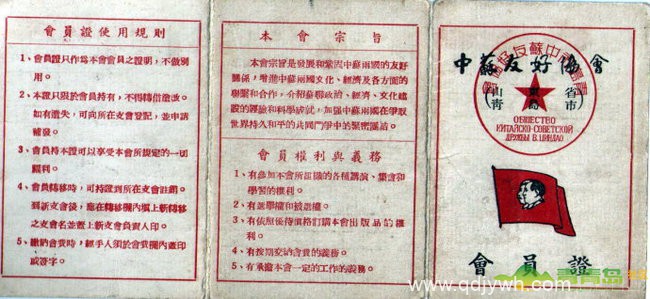 會員證使用規則
1、會員證只作為本會會員之證明，不做別
用。
2、本證只限於會員持有，不得轉借塗改。
如有遺失，可向所在支會登記，並申請
補發。
3、會員持本證可以享受本會所規定的一切
權利。
4、會員轉移時，可持證到所在支會註銷。
到新支會後，應在轉移欄內填上新轉移
之支會名並蓋上新支會負責人印。
5、繳納會費時，經手人須於會費欄內蓋印
或簽字。
本會宗旨
本會宗旨是發展和鞏固中蘇兩國的友好
關係，增進中蘇兩國文化、經濟及各方面的
聯繫和合作，介紹蘇聯政治、經濟、文化建
設的經驗和科學成就，加强中蘇兩國在爭取
世界持久和平的共同鬥爭中的緊密團結。
會員權利與義務
1、有參加本會所組織的各種講演、集會和
學習的權利。
2、有選舉權和被選權。
3、有依照優待價格訂購本會出版品的權
利。
4、有按期交納會費的義務。
5、有承擔本會一定的工作的義務。
中蘇友好協會
山東省
青島市
ОБЩЕСТВО
КИТАЙСКО-СОВЕТСКОЙ
ДРУЖБЫ В. ЦИНДАО
會員證
www.qdjywh.com
青島